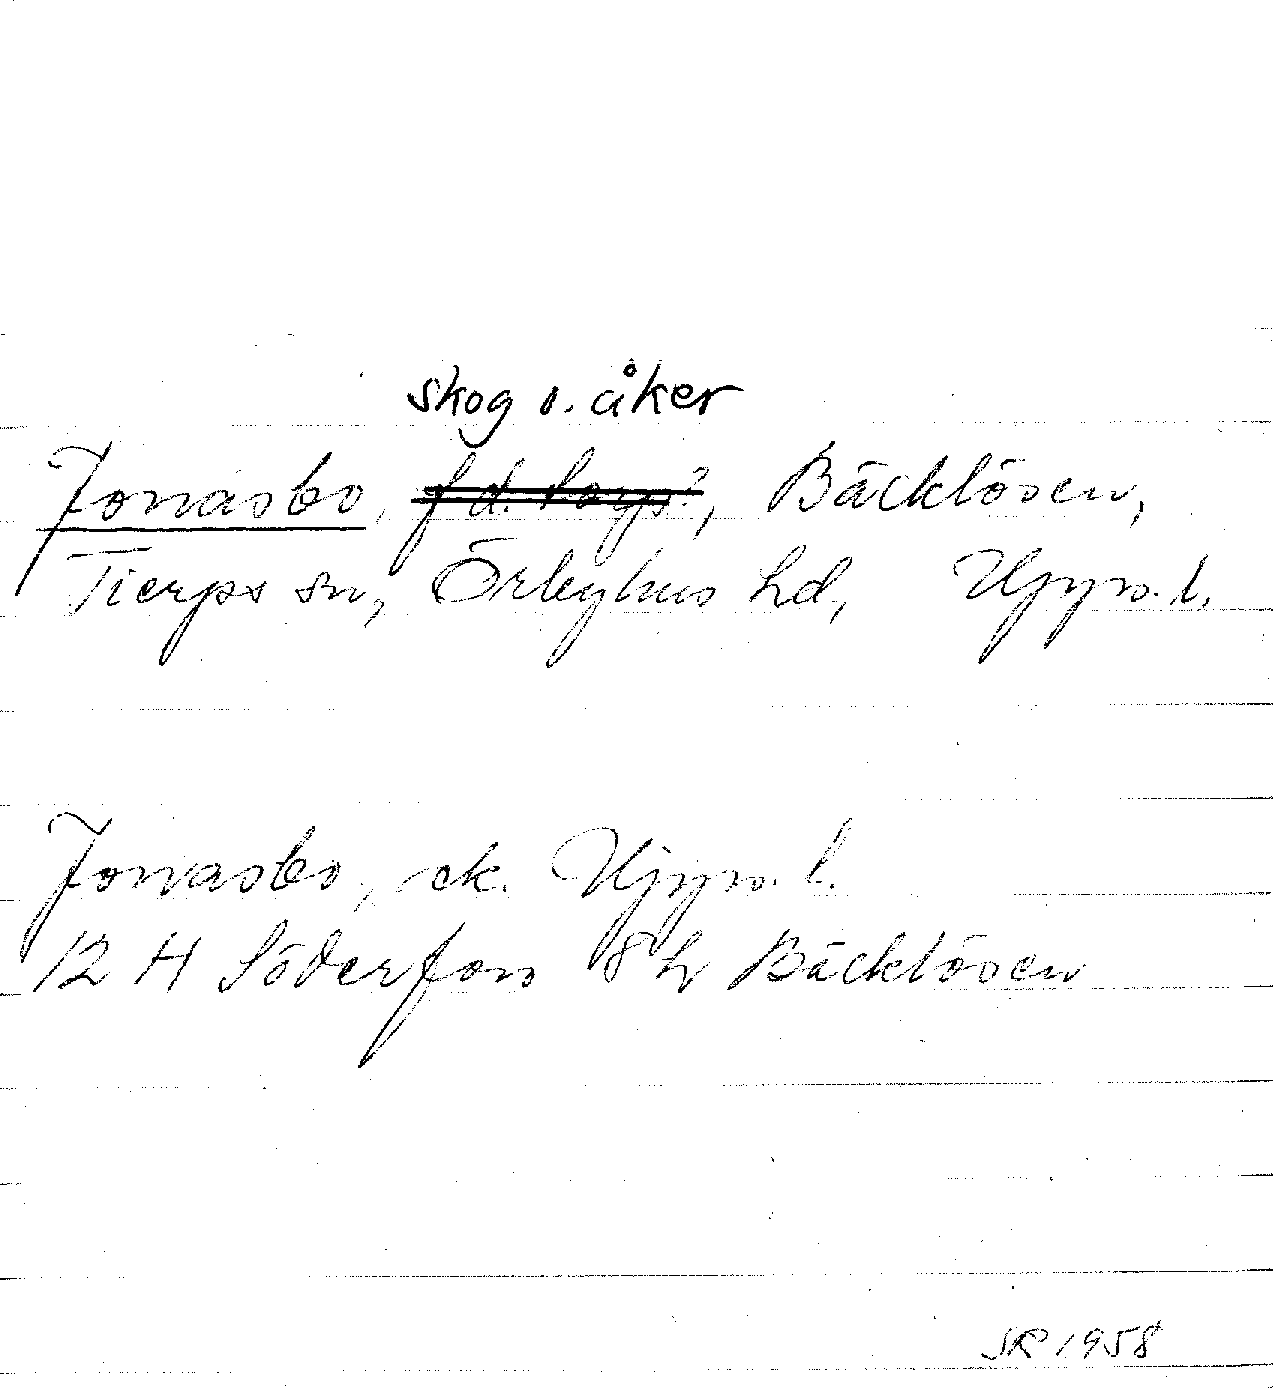 skog o. åker
Jonasbo, f d. torps?, Bäcklösen,
Tierps sn, Örbyhus hd, Upps. l.
Jonasbo, ek. Upps. l.
12 H Söderfors 8 h Bäcklösen
SR 1958